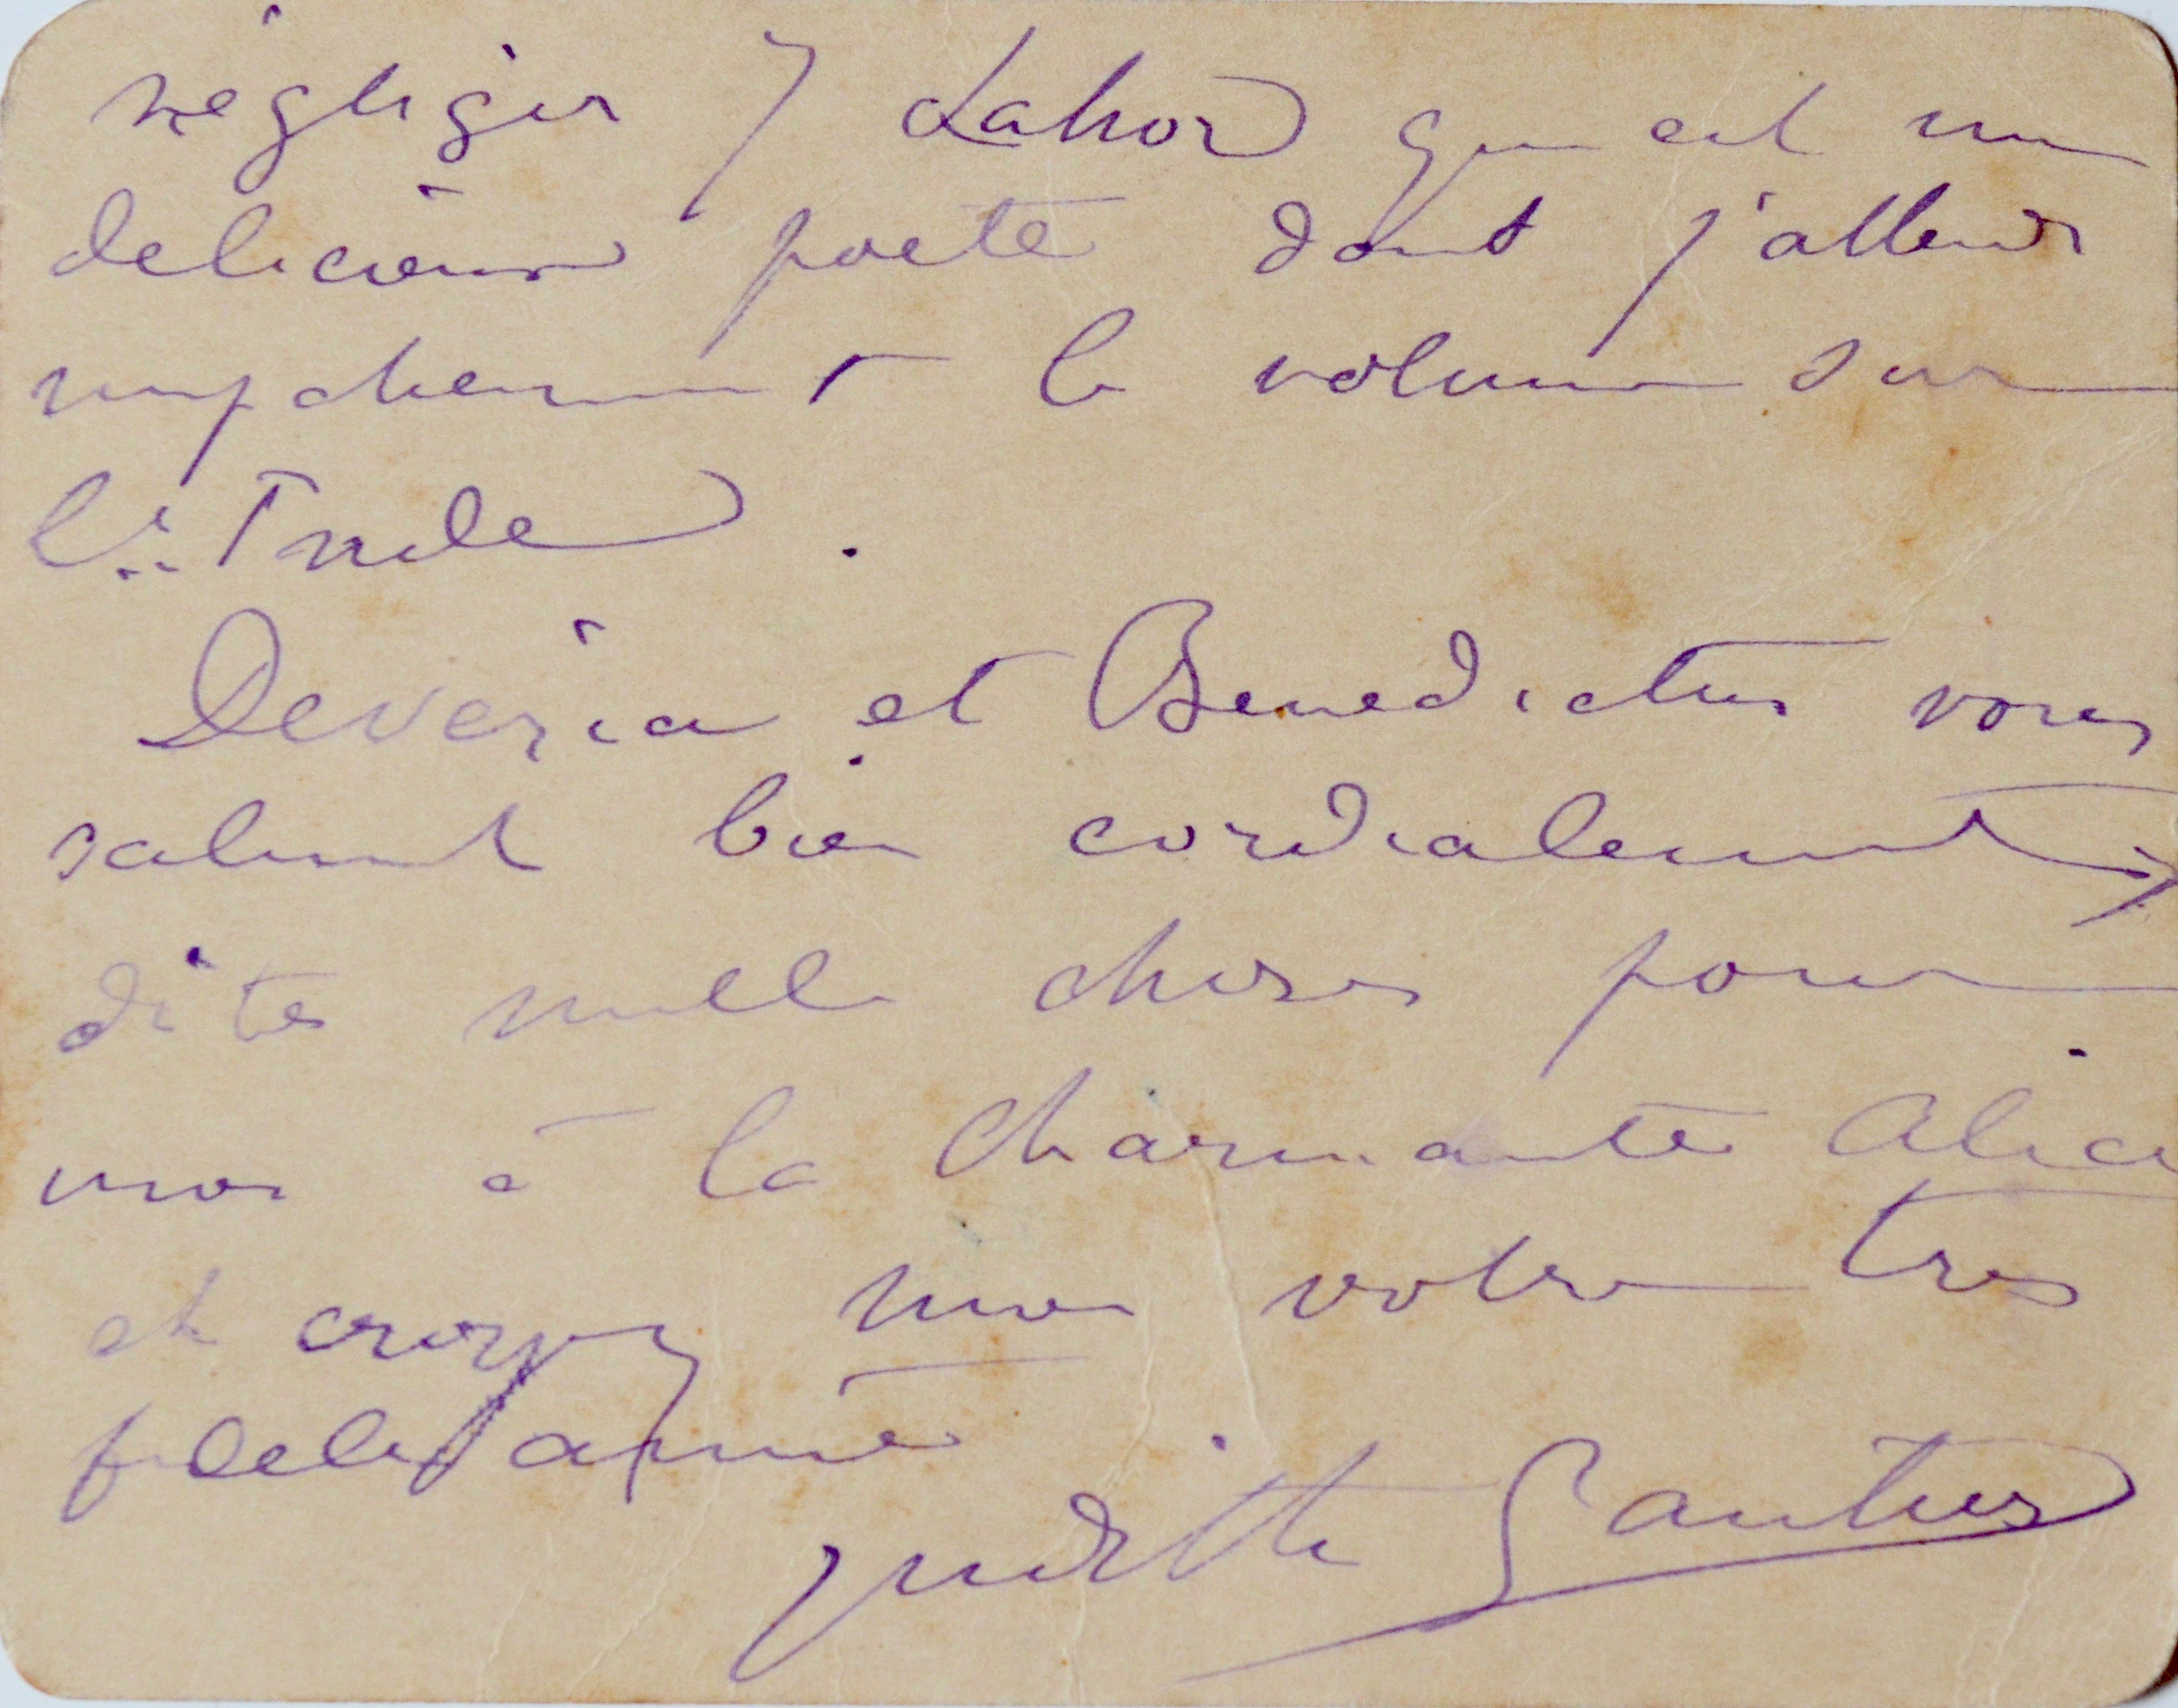 négliger J Lahor qui est un
délicieux poète dont j'attends
impatiemment le volume sur
l'Inde.
Deveria et Benedictus vous
saluent bien cordialement
dites mille choses pour
moi à la charmante Alice
et croyez moi votre très
fidele amie
Judith Gautier